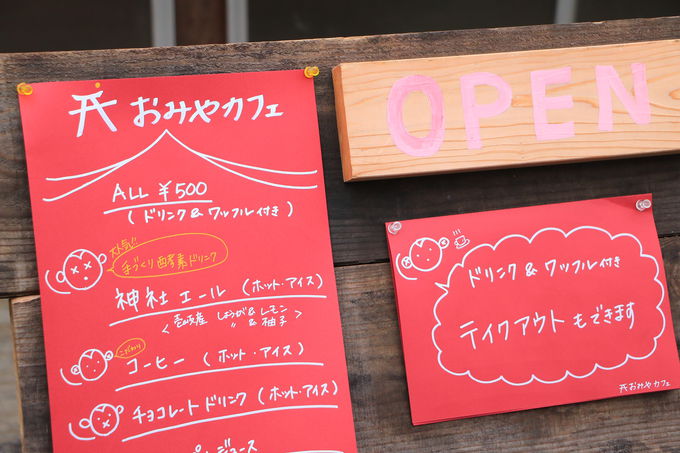 おみやカフェ
ALL ¥500
(ドリンク&ワッフル付き)
大人気!!
手づくり酵素ドリンク
神社エール (ホット・アイス)
<壱岐産 しょうが&レモン
〃 &柚子>
コーヒー (ホット・アイス)
チョコレートドリンク(ホット・アイス)
OPEN
ドリンク&ワッフル付き
テイクアウトもできます
おみやカフェ